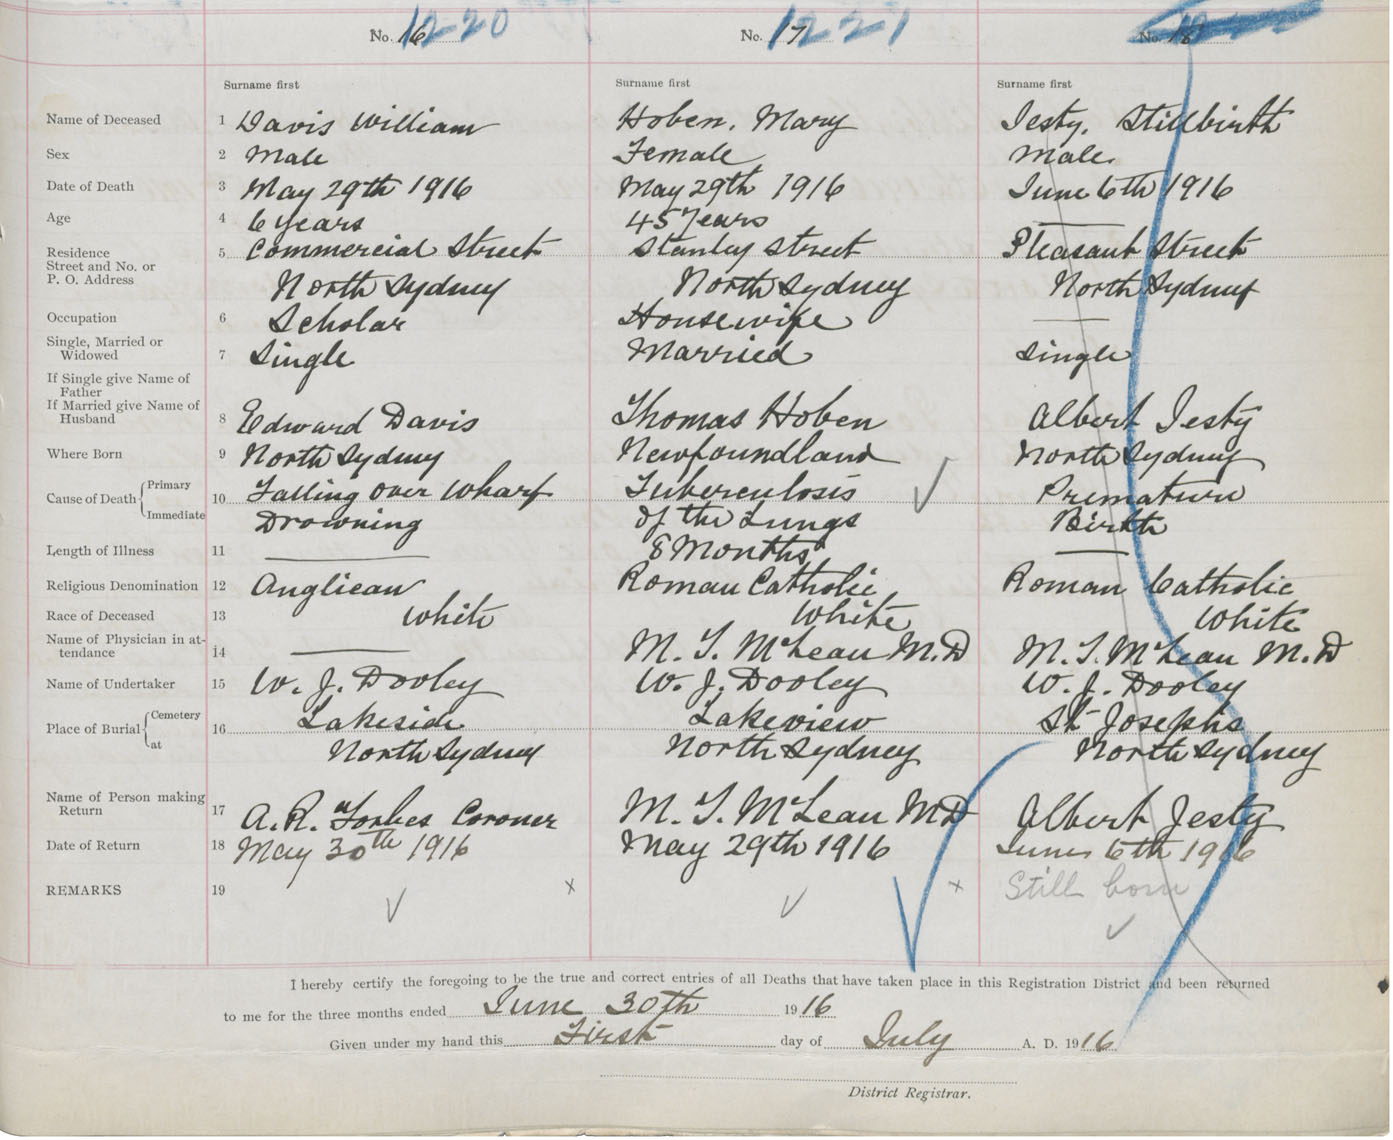 No. 16 1220 No. 17 1221 No. 18
Surname first Surname first Surname first
Name of Deceased 1 Davis William Hoben, Mary Jesty, Stillbirth
Sex 2 Male Female Male
Date of Death 3 May 29th 1916 May 29th 1916 June 6th 1916
Age 4 6 years 45 Years
Residence
Street and No. or 5 Commercial Street Stanley Street Pleasant Street
P. O. Address North Sydney North Sydney North Sydney
Occupation 6 Scholar Housewife
Single, Married or
Widowed 7 Single Married Single
If Single give Name of
Father
If Married give Name of
Husband 8 Edward Davis Thomas Hoben Albert Jesty
Where Born 9 North Sydney Newfoundland North Sydney
Cause of Death { Primary 10 Falling over wharf Tuberculosis Premature
Immediate Drowning of the Lungs Birth
Length of Illness 11 8 Months
Religious Denomination 12 Anglican Roman Catholic Roman Catholic
Race of Deceased 13 White White White
Name of Physician in at-
tendance 14 M. T. McLean M.D M.T. McLean M.D
Name of Undertaker 15 W. J. Dooley W. J. Dooley W. J. Dooley
Place of Burial { Cemetery 16 Lakeside Lakeview St Josephs
at North Sydney North Sydney North Sydney
Name of Person making
Return 17 A. R. Forbes Coroner M. T. McLean MD Albert Jesty
Date of Return 18 May 30th 1916 May 29th 1916 June 6th 1916
REMARKS 19 x x Still born
I hereby certify the foregoing to be the true and correct entries of all Deaths that have taken place in this Registration District and been returned
to me for the three months ended June 30th 1916
Given under my hand this First day of July A. D. 1916
District Registrar.